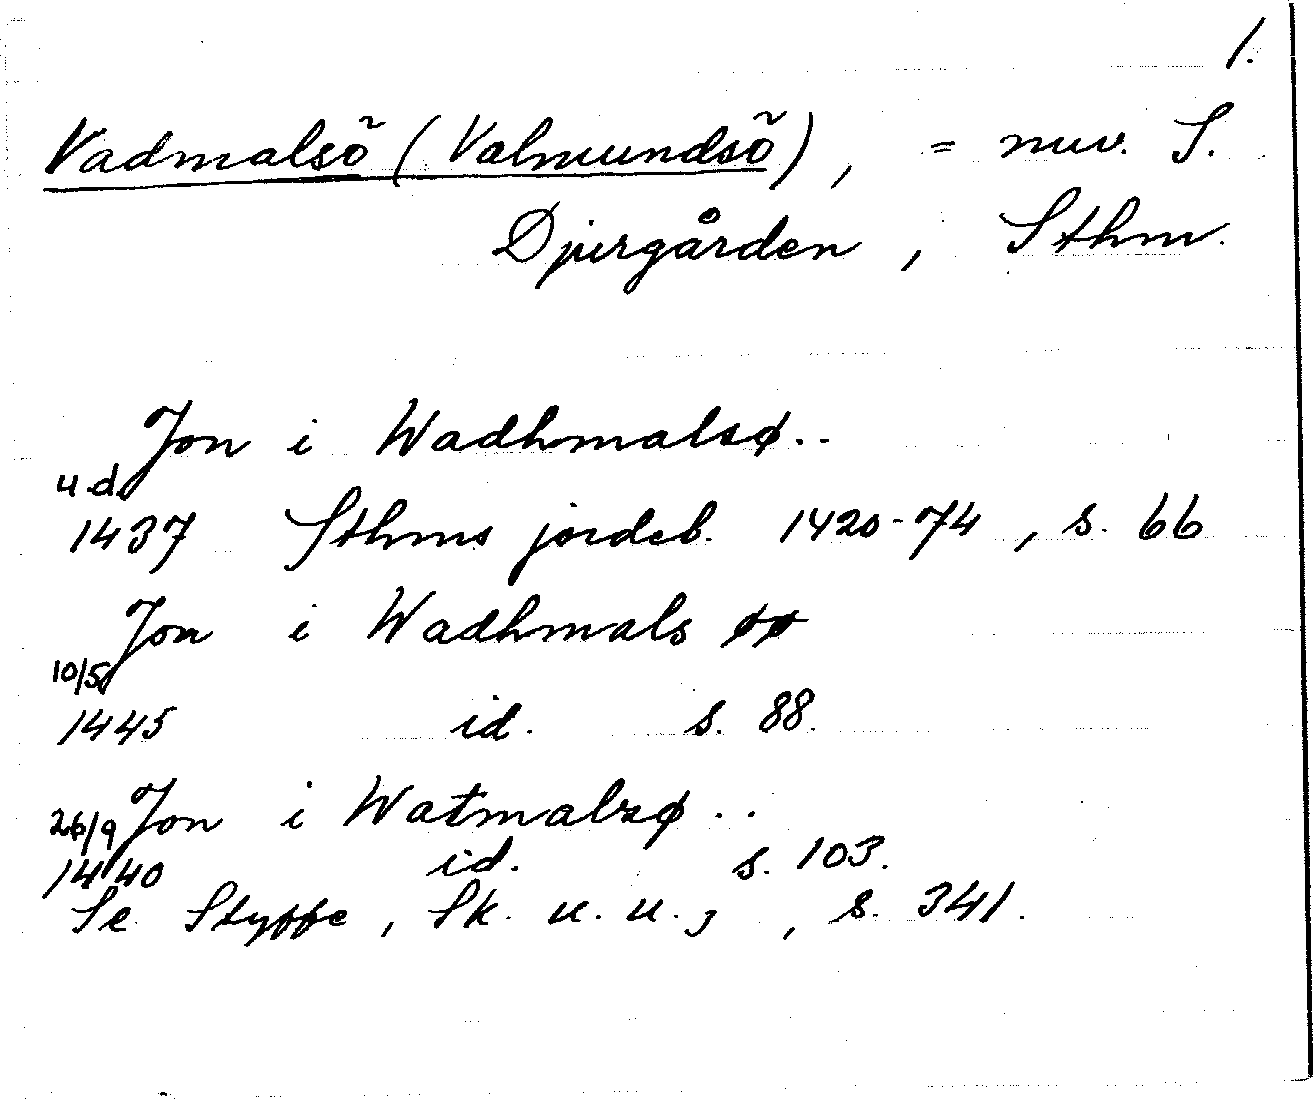 1.
Vadmalsö (Valmundsö), = nuv. S.
Djurgården, Sthm.
Jon i Wadhmalsø..
u.d.
1437 Sthms jordeb. 1420-74, s. 66
Jon i Wadhmals øø
10/5
1445 id. s. 88.
Jon i Watmalsø..
26/9
1440 id. s. 103.
Se Styffe, Sk. u. u.3, s. 341.